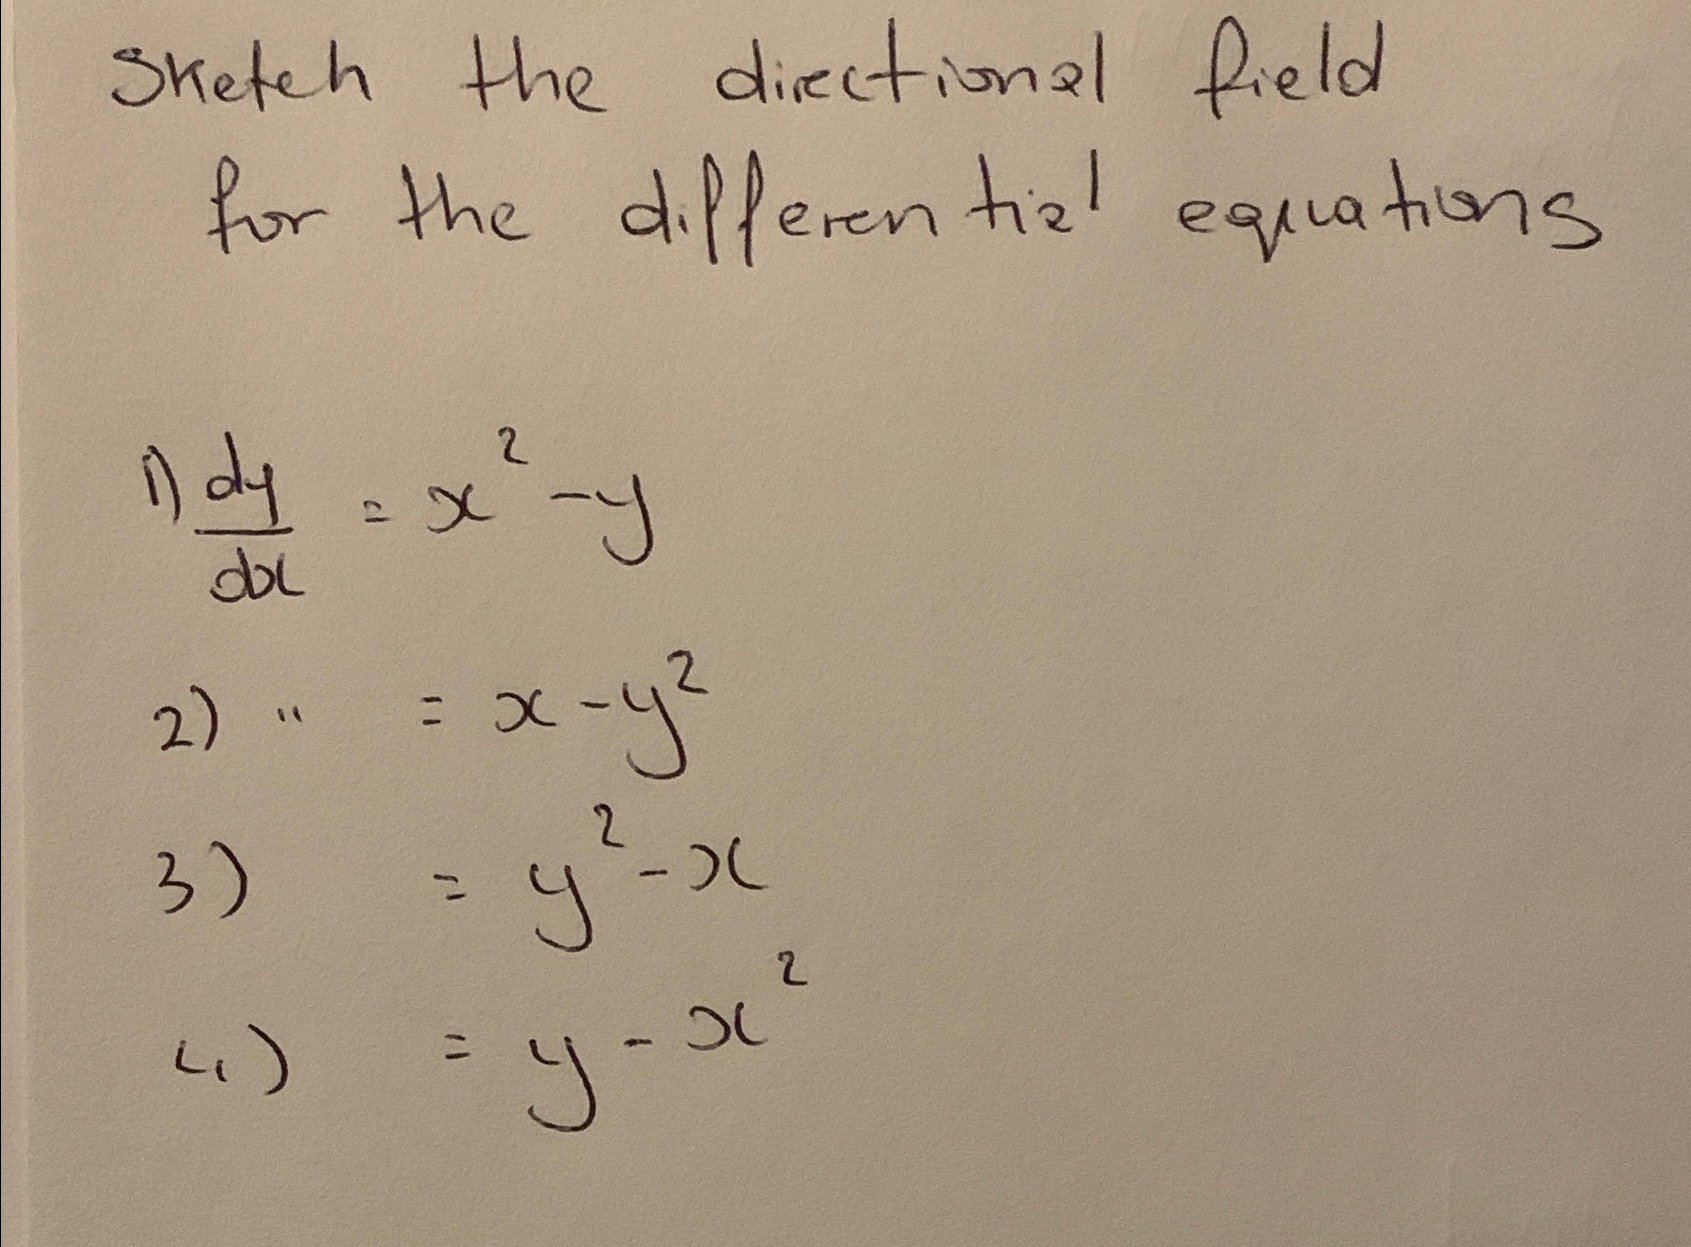 Sketch the directional field
for the differential equations
1) dy/dx = x² - y
2) " = x - y²
3) = y² - x
4) = y - x²